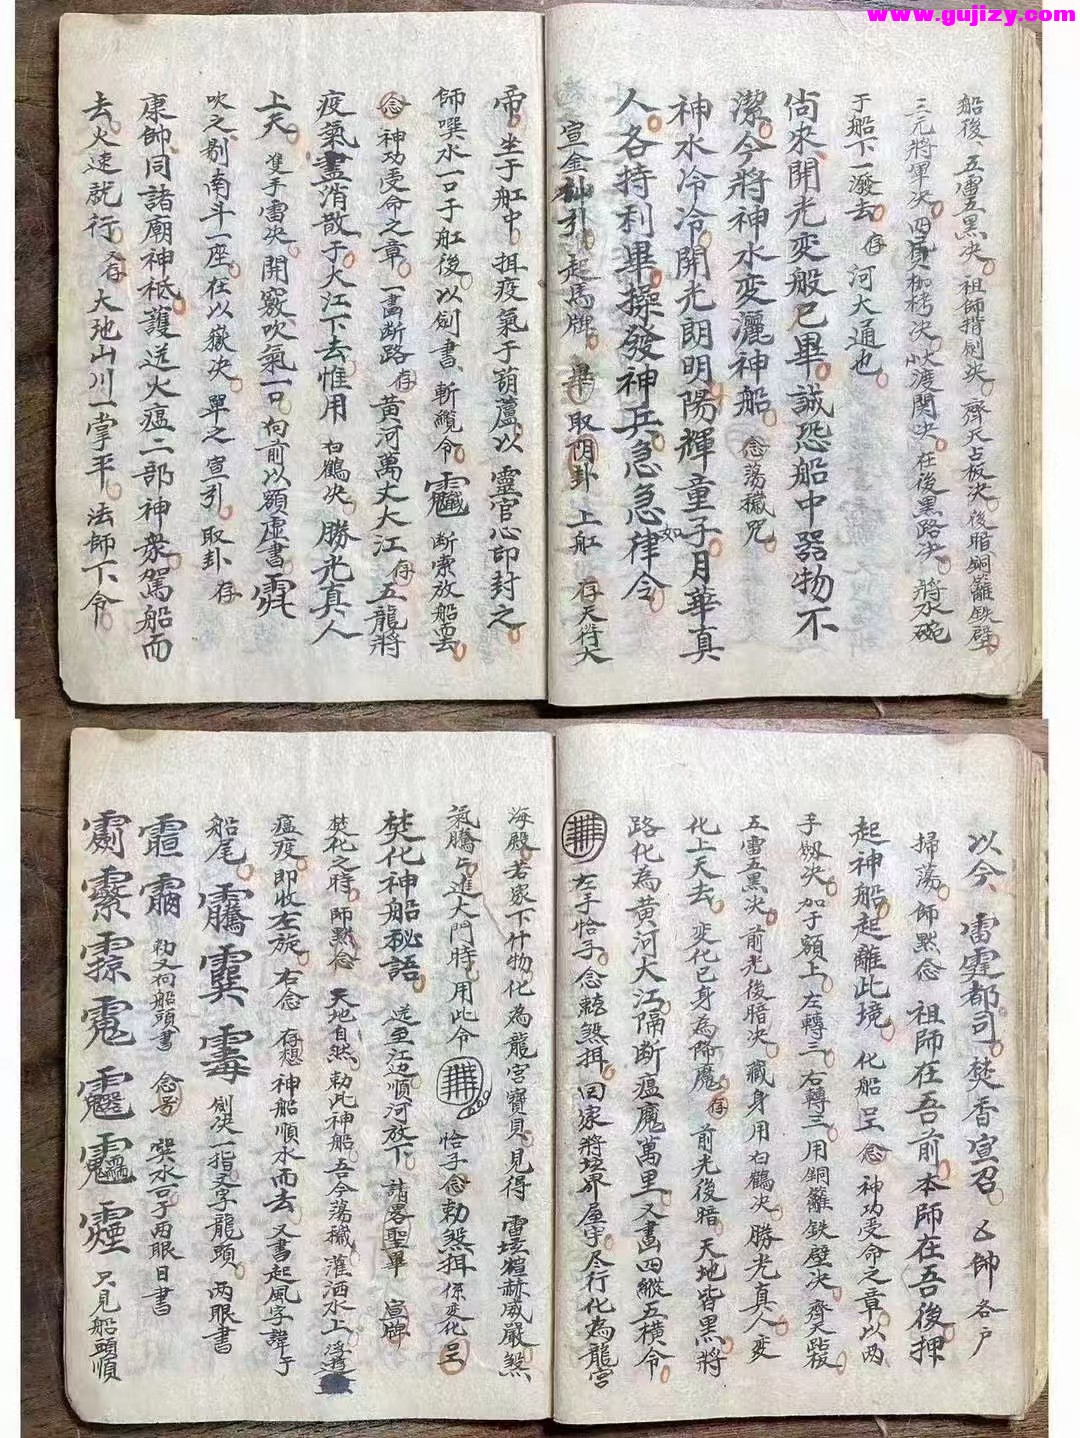 www.gujizy.com
船後、五雷五黑决。祖師指劍决。齊天占板决。後暗銅籬鉄壁
三元將軍决。四員枷栲决。以渡関决。在後黑路决。將水碗
于船下一潑去。存 河大通也。
尚来開光变般已畢。誠恐船中器物不
潔。今將神水变灑神船。念蕩穢咒。
神水冷冷開光朗明陽輝童子月華真
人各持利畢操發神兵急急如律令
宣金 引 起馬牌 畢取阴卦 上舡 存天符大
帝。坐于舡中 揖疫氣于葫蘆。以 靈官心印封之。
師噀水一口于舡後以劍書、斬纜令 断索放船雲
念神功受命之章。一畵断路。存 黄河萬丈大江。存 五龍將
疫氣盡消散于火江下去惟用 白鶴决。勝光真人
上天。雙手雷决。開竅吹氣一口。向前以額虛書
吹之。剔南斗一座。在以嶽决。單之。宣引。取卦。存
康帥。同諸廟神祗。護送火瘟二部神衆。駕船而
去。火速就行。存 大地山川一掌平。法師下令
以今 雷霆都司。焚香宣召。 帥各户
掃蕩。師黙念 祖師在吾前。本師在吾後。押
起神船。起離此境。化船 念神功受命之章。以两
手劔决。加于額上。左轉三。右轉三。用銅籬鉄壁决。齊天跕板
五雷五黑决。前光後暗决。藏身用白鶴决 勝光真人变
化上天去。变化已身為降魔。存 前光後暗。天地皆黑。將
路化為黄河大江。隔断瘟魔萬里。又畵四縱五横令
左手恰子。念 煞揖。回家將垃界屋宇。尽行化為龍宮
海殿。若家下什物化為龍宮寶貝。見得 雷坛煊赫威嚴。煞
氣騰乞進大門時。用此令 恰子念勅煞揖。係变化
焚化神船秘語。送至江边順河放下。請畧聖畢 宣牌
焚化之時。師黙念 天地自然。勅此神船。吾今蕩穢。灌洒水上。浮遊
瘟疫。即收左旋。右念 存想神船順水而去。又書起風字諱于
船尾。 劍决一指文字龍頭。两眼書
勅文向船頭書 念号 噀水一口于两眼目書
只見船頭順